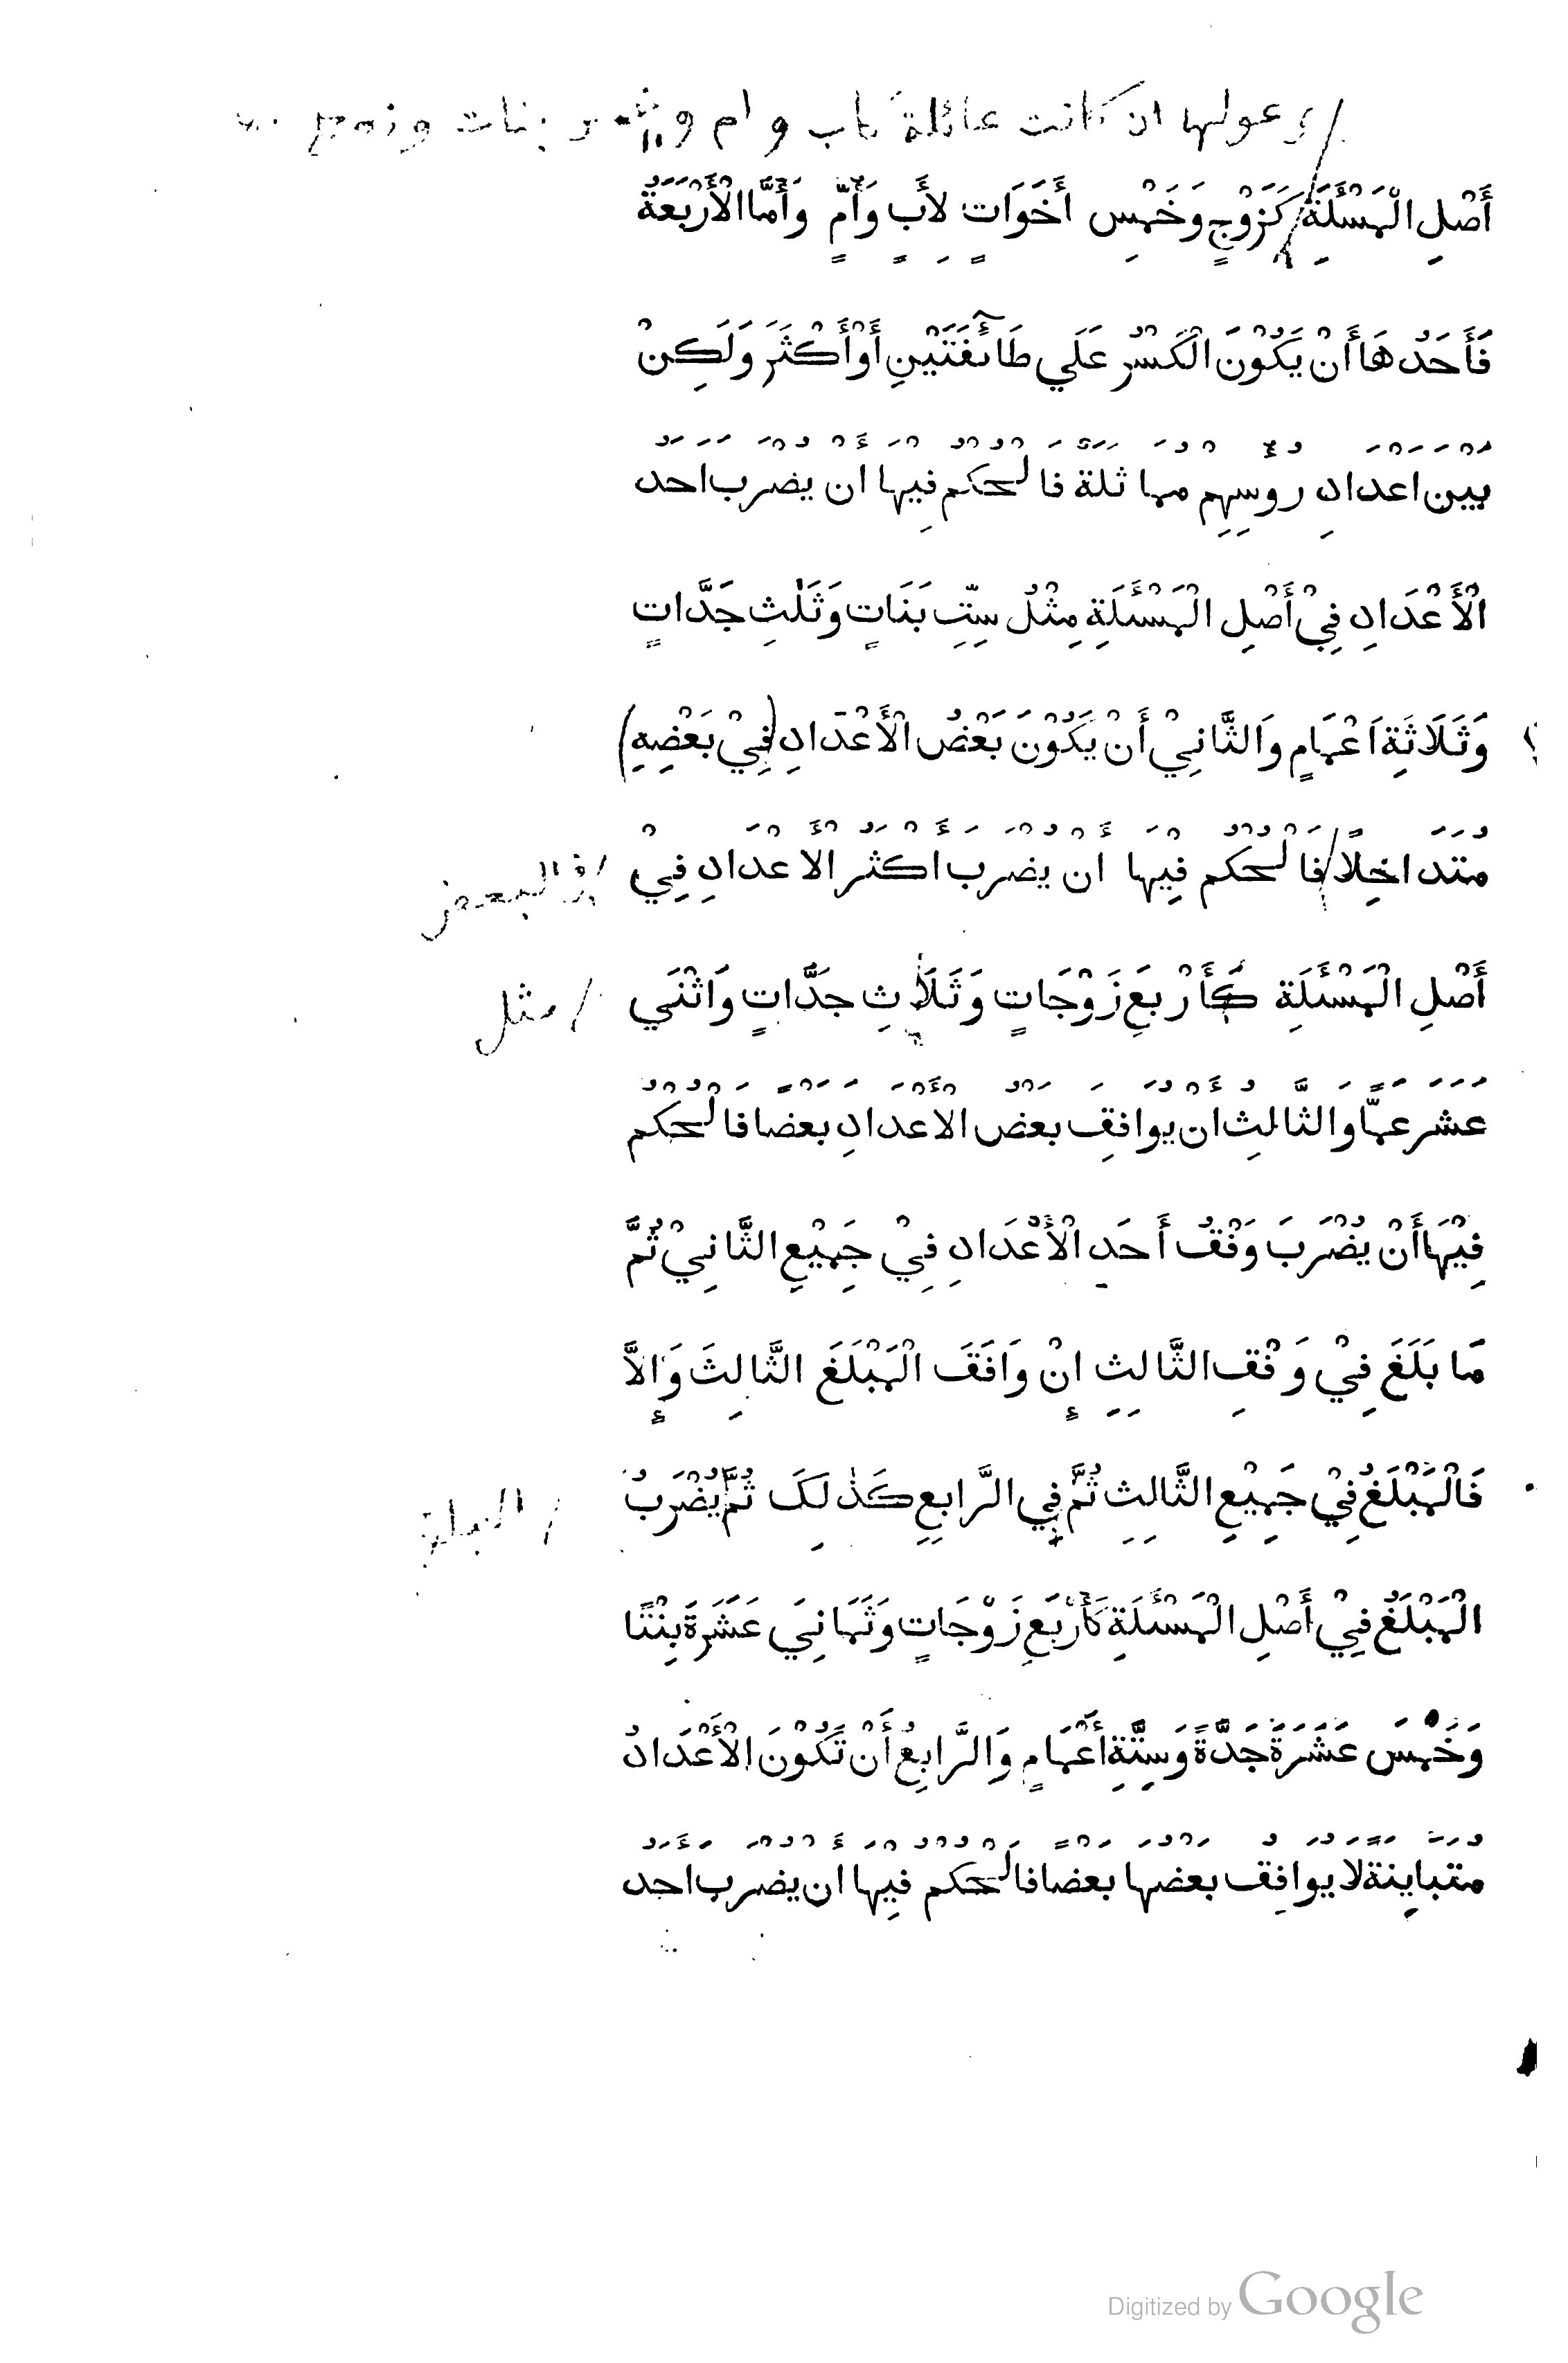 وعولها ان كانت عائلة كاب وام و بنات وزوج
أَصْلِ الْمَسْئَلَةِ كَزَوْجٍ وَخَمْسِ أَخَوَاتٍ لِأَبٍ وَأُمٍّ وَأَمَّا الْأَرْبَعَةُ
فَأَحَدُهَا أَنْ يَكُوْنَ الْكَسْرُ عَلَي طَائِفَتَيْنِ أَوْ أَكْثَرَ وَلَكِنْ
بَيْنَ أَعْدَادِ رُؤُسِهِمْ مُمَاثَلَةٌ فَالْحُكْمُ فِيْهَا أَنْ يُضْرَبَ أَحَدُ
الْأَعْدَادِ فِيْ أَصْلِ الْمَسْئَلَةِ مِثْلُ سِتِّ بَنَاتٍ وَثَلٰثِ جَدَّاتٍ
وَثَلَاثَةِ اَعْمَامٍ وَالثَّانِيْ أَنْ يَكُوْنَ بَعْضُ الْأَعْدَادِ (فِيْ بَعْضِهِ)
مُتَدَاخِلًا فَالْحُكْمُ فِيْهَا أَنْ يُضْرَبَ أَكْثَرُ الْأَعْدَادِ فِيْ
/ في البعض
أَصْلِ الْمَسْئَلَةِ كَأَرْبَعِ زَوْجَاتٍ وَثَلَاثِ جَدَّاتٍ وَاثْنَي
/ مثل
عَشَرَ عَمًّا وَالثَّالِثُ أَنْ يُوَافِقَ بَعْضُ الْأَعْدَادِ بَعْضًا فَالْحُكْمُ
فِيْهَا أَنْ يُضْرَبَ وَفْقُ أَحَدِ الْأَعْدَادِ فِيْ جَمِيْعِ الثَّانِيْ ثُمَّ
مَا بَلَغَ فِيْ وَفْقِ الثَّالِثِ إِنْ وَافَقَ الْمَبْلَغَ الثَّالِثَ وَإِلَّا
فَالْمَبْلَغُ فِيْ جَمِيْعِ الثَّالِثِ ثُمَّ فِي الرَّابِعِ كَذٰلِكَ ثُمَّ يُضْرَبُ
الْمَبْلَغُ فِيْ أَصْلِ الْمَسْئَلَةِ كَأَرْبَعِ زَوْجَاتٍ وَثَمَانِيَ عَشَرَةَ بِنْتًا
وَخَمْسَ عَشَرَةَ جَدَّةً وَسِتَّةِ أَعْمَامٍ وَالرَّابِعُ أَنْ تَكُوْنَ الْأَعْدَادُ
مُتَبَايِنَةً لَا يُوَافِقُ بَعْضُهَا بَعْضًا فَالْحُكْمُ فِيْهَا أَنْ يُضْرَبَ أَحَدُ
Digitized by Google